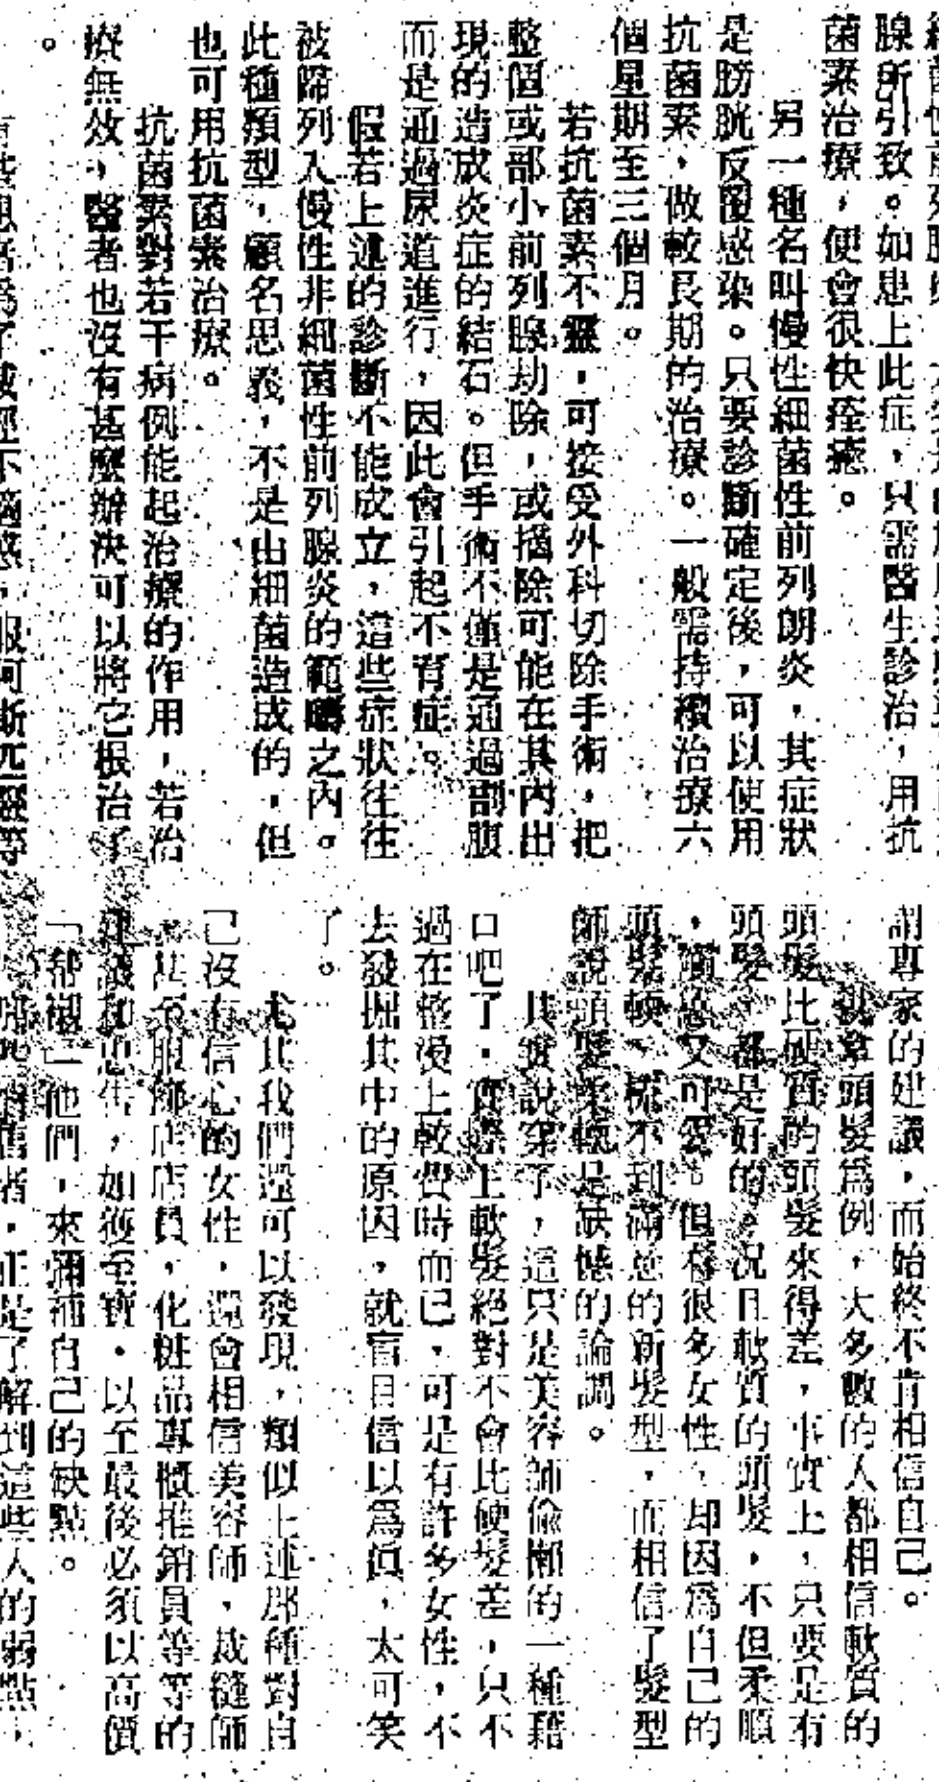 腺所引致。如患上此症，只需醫生診治，用抗
菌素治療，便會很快痊癒。
另一種名叫慢性細菌性前列朗炎，其症狀
是膀胱反覆感染。只要診斷確定後，可以使用
抗菌素，做較長期的治療。一般需持續治療六
個星期至三個月。
若抗菌素不靈，可接受外科切除手術，把
整個或部小前列腺割除，或摘除可能在其內出
現的造成炎症的結石。但手術不僅是通過剖腹
而是通過尿道進行，因此會引起不育症。
假若上述的診斷不能成立，這些症狀往往
被歸列入慢性非細菌性前列腺炎的範疇之內。
此種類型，顧名思義，不是由細菌造成的，但
也可用抗菌素治療。
抗菌素對若干病例能起治療的作用，若治
療無效，醫者也沒有甚麼辦決可以將它根治了
。
謂專家的建議，而始終不肯相信自己。
就拿頭髮爲例，大多數的人都相信軟質的
頭髮比硬質的頭髮來得差，事實上，只要是有
頭髮，都是好的，況且軟質的頭髮，不但柔順
，又可愛。但很多女性，却因爲自己的
頭髮軟，梳不到滿意的新髮型，而相信了髮型
師說頭髮柔軟是缺憾的論調。
其實說穿了，這只是美容師偷懶的一種藉
口吧了，實際上軟髮絕對不會比硬髮差，只不
過在整燙上較費時而已，可是有許多女性，不
去發掘其中的原因，就盲目信以爲眞，太可笑
了。
尤其我們還可以發現，類似上述那種對自
己沒有信心的女性，還會相信美容師，裁縫師
，甚至服飾店店員，化粧品專櫃推銷員等等的
建議和忠告，如獲至寶，以至最後必須以高價
「幫襯」他們，來彌補自己的缺點。
者，正是了解到這些人的弱點，